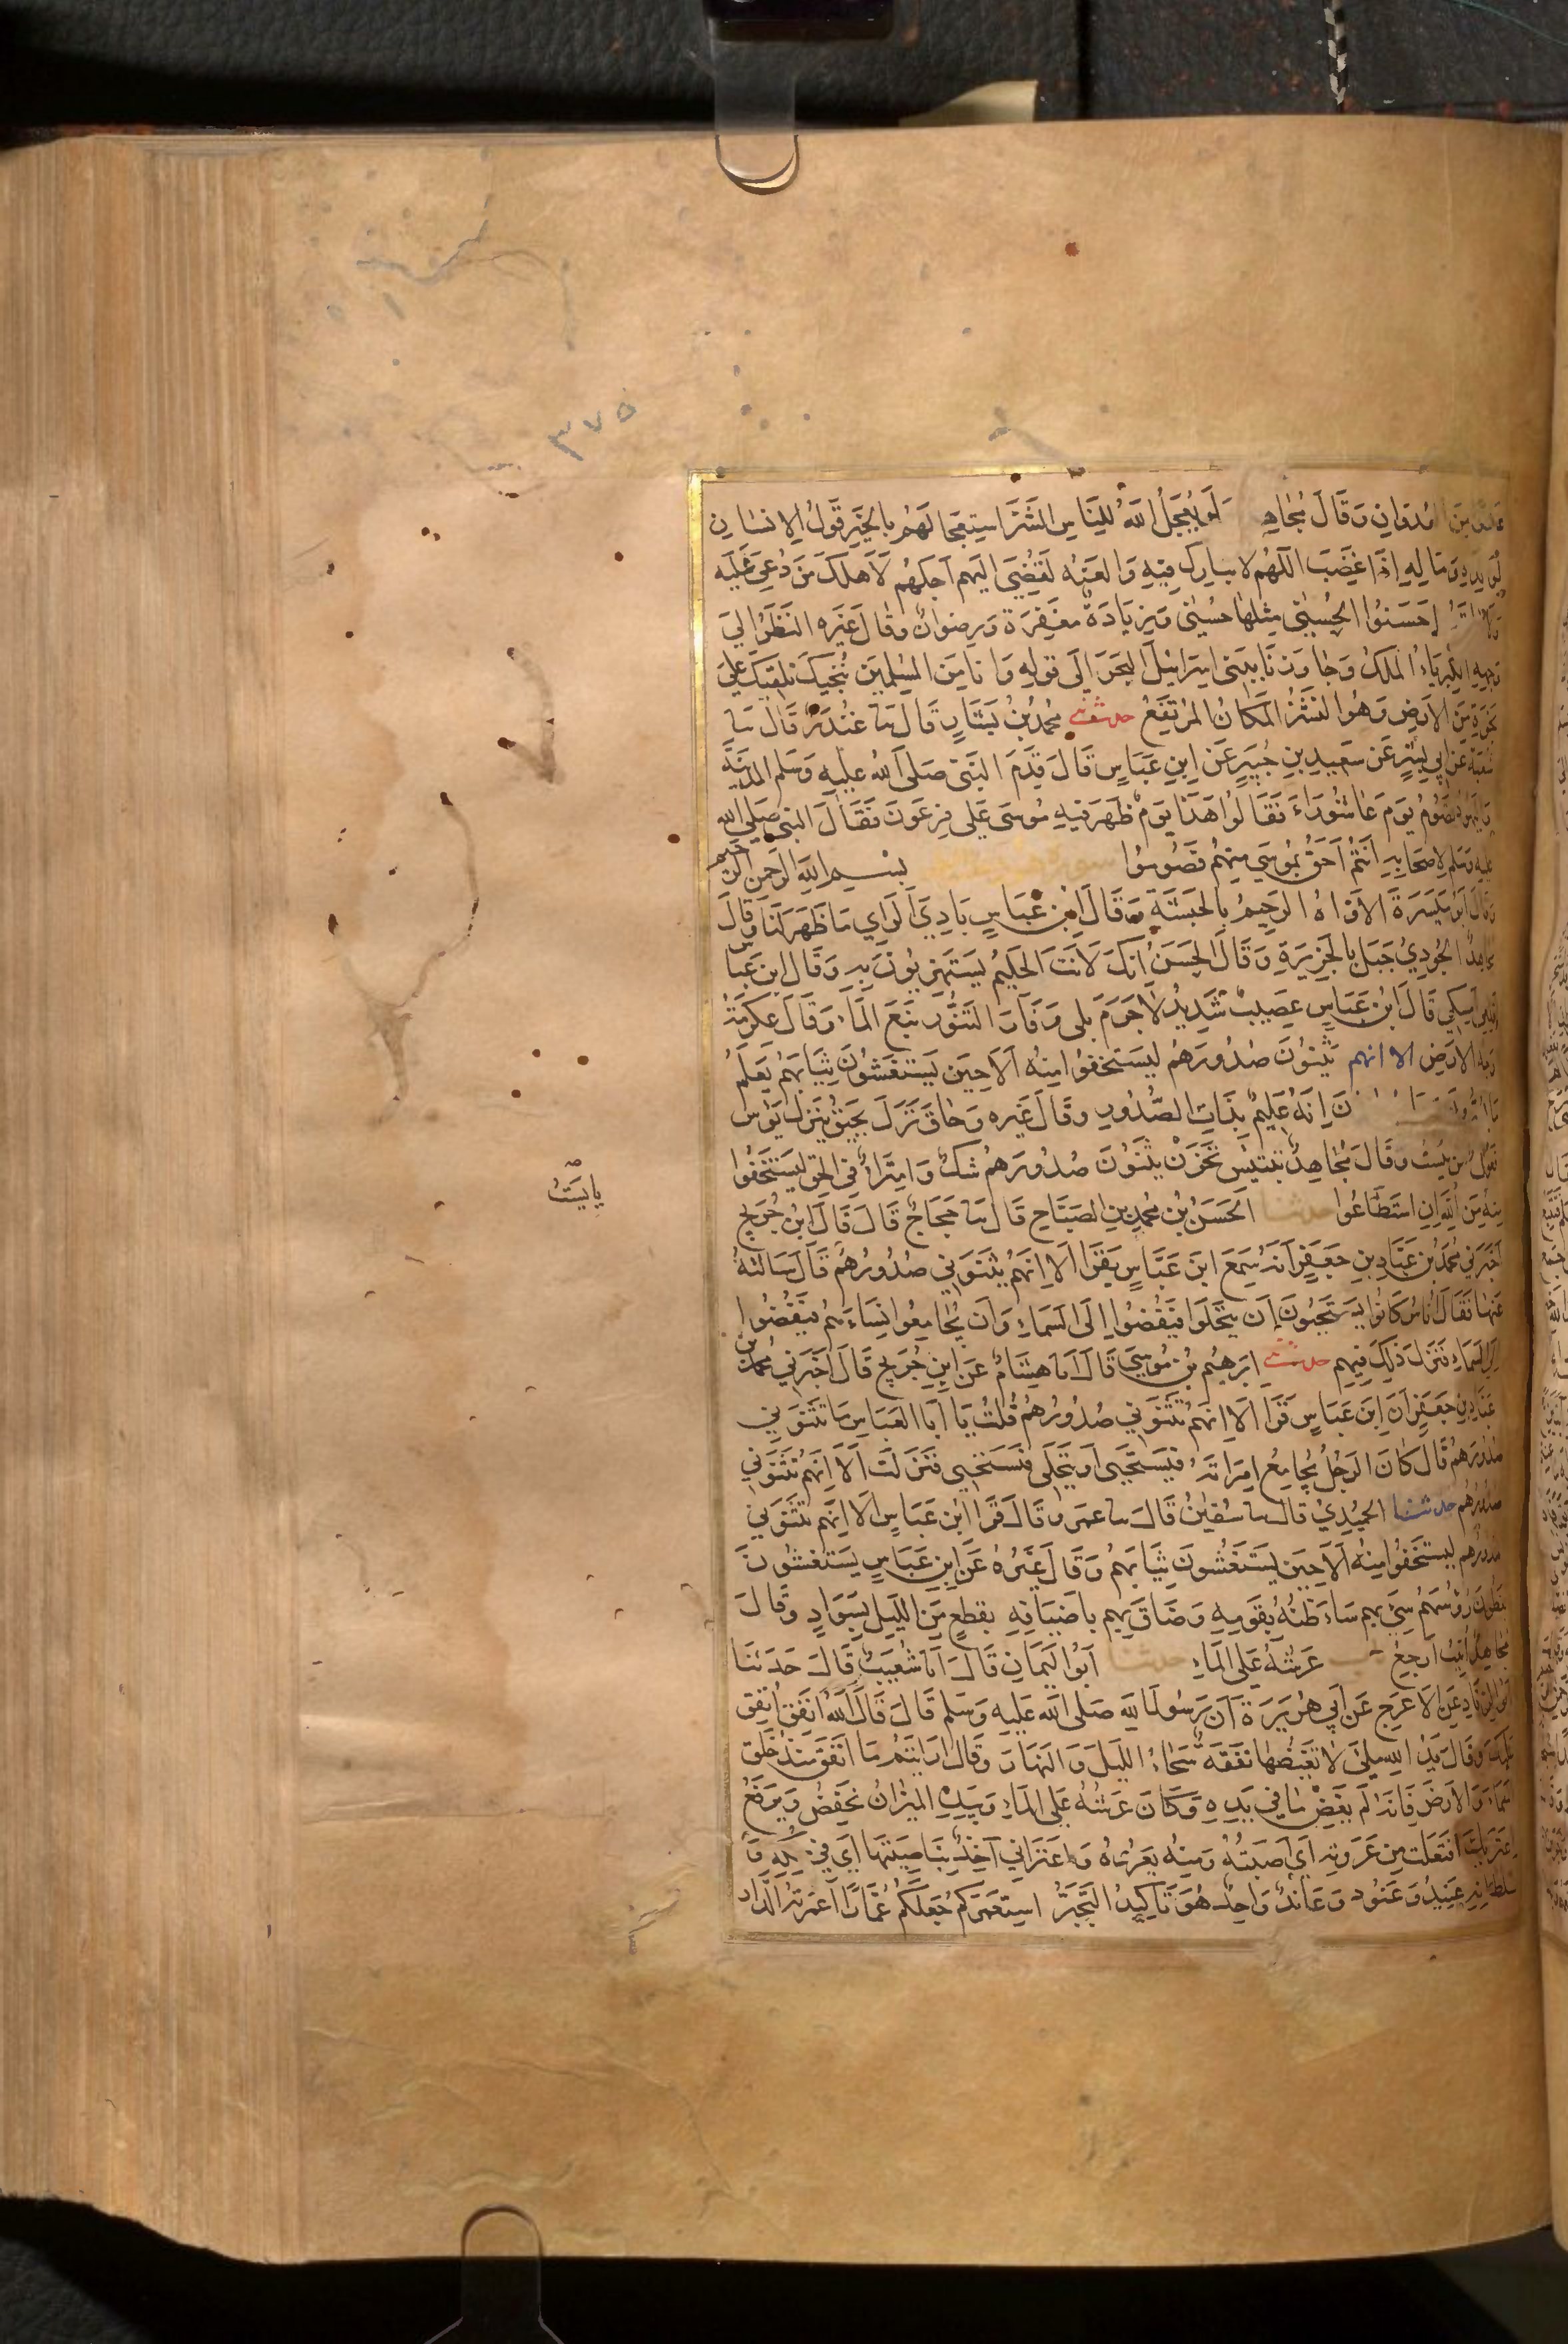 ٣٧٥
من العدوان وقال مجاهد ولو يعجل الله للناس الشر استعجالهم بالخير قول الانسان
لولده وماله اذا غضب اللهم لا تبارك فيه والعنه لقضي اليهم اجلهم لاهلك من دعي عليه
احسنوا الحسنى مثلها حسنى وزيادة مغفرة ورضوان وقال غيره النظر الي
وجهه الكبرياء الملك وجاوزنا ببني اسرائيل البحر الى قوله وانا من المسلمين ننجيك نلقيك على
نجوة من الارض وهو النشز المكان المرتفع حدثني محمد بن بشار قال نا غندر قال نا
شعبة عن ابي بشر عن سعيد بن جبير عن ابن عباس قال قدم النبي صلى الله عليه وسلم المدينة
واليهود تصوم يوم عاشوراء فقالوا هذا يوم ظهر فيه موسى على فرعون فقال النبي صلى الله
عليه وسلم لاصحابه انتم احق بموسى منهم فصوموا سورة هود بسم الله الرحمن الرحيم
وقال ابو ميسرة الاواه الرحيم بالحبشة وقال ابن عباس بادي الراي ما ظهر لنا وقال
مجاهد الجودي جبل بالجزيرة وقال الحسن انك لانت الحليم يستهزيون به وقال ابن عباس
اقلعي امسكي قال ابن عباس عصيب شديد لا جرم بلى وفار التنور نبع الماء وقال عكرمة
وجه الارض الا انهم يثنون صدورهم ليستخفوا منه الا حين يستغشون ثيابهم يعلم
ما انه عليم بذات الصدور وقال غيره وحاق نزل يحيق ينزل يؤس
فعول من يئست وقال مجاهد تبتئس تحزن يثنون صدورهم شك وامتراء في الحق ليستخفوا
منه من الله ان استطاعوا حدثنا الحسن بن محمد بن الصباح قال نا حجاج قال قال ابن جريج
اخبرني محمد بن عباد بن جعفر انه سمع ابن عباس يقرا الا انهم يثنوني صدورهم قال سالته
عنها فقال اناس كانوا يستحيون ان يتخلوا فيفضوا الى السماء وان يجامعوا نساءهم فيفضوا
الى السماء فنزل ذلك فيهم حدثني ابرهيم بن موسى قال انا هشام عن ابن جريج قال اخبرني محمد بن
عباد بن جعفر ان ابن عباس قرا الا انهم تثنوني صدورهم قلت يا ابا العباس ما تثنوني
صدورهم قال كان الرجل يجامع امراته فيستحيى او يتخلى فيستحيى فنزلت الا انهم تثنوني
صدورهم حدثنا الحميدي قال نا سفين قال نا عمرو قال قرا ابن عباس الا انهم تثنوني
صدورهم ليستخفوا منه الا حين يستغشون ثيابهم وقال غيره عن ابن عباس يستغشون
يغطون رؤسهم سيء بهم ساء ظنه بقومه وضاق بهم باضيافه بقطع من الليل بسواد وقال
مجاهد انيب ارجع عرشه على الماء حدثنا ابو اليمان قال انا شعيب قال حدثنا
ابو الزناد عن الاعرج عن ابي هريرة ان رسول الله صلى الله عليه وسلم قال قال الله انفق انفق
عليك وقال يد الله ملئ لا تغيضها نفقة سحاء الليل والنهار وقال ارايتم ما انفق منذ خلق
السماء والارض فانه لم يغض ما في يده وكان عرشه على الماء وبيده الميزان يخفض ويرفع
اعتراك افتعلت من عروته اي اصبته ومنه يعروه واعتراني آخذ بناصيتها اي في ملكه و
سلطانه عنيد وعنود وعاند واحد هو تاكيد التجبر استعمركم جعلكم عمارا اعمرته الدار
يايست